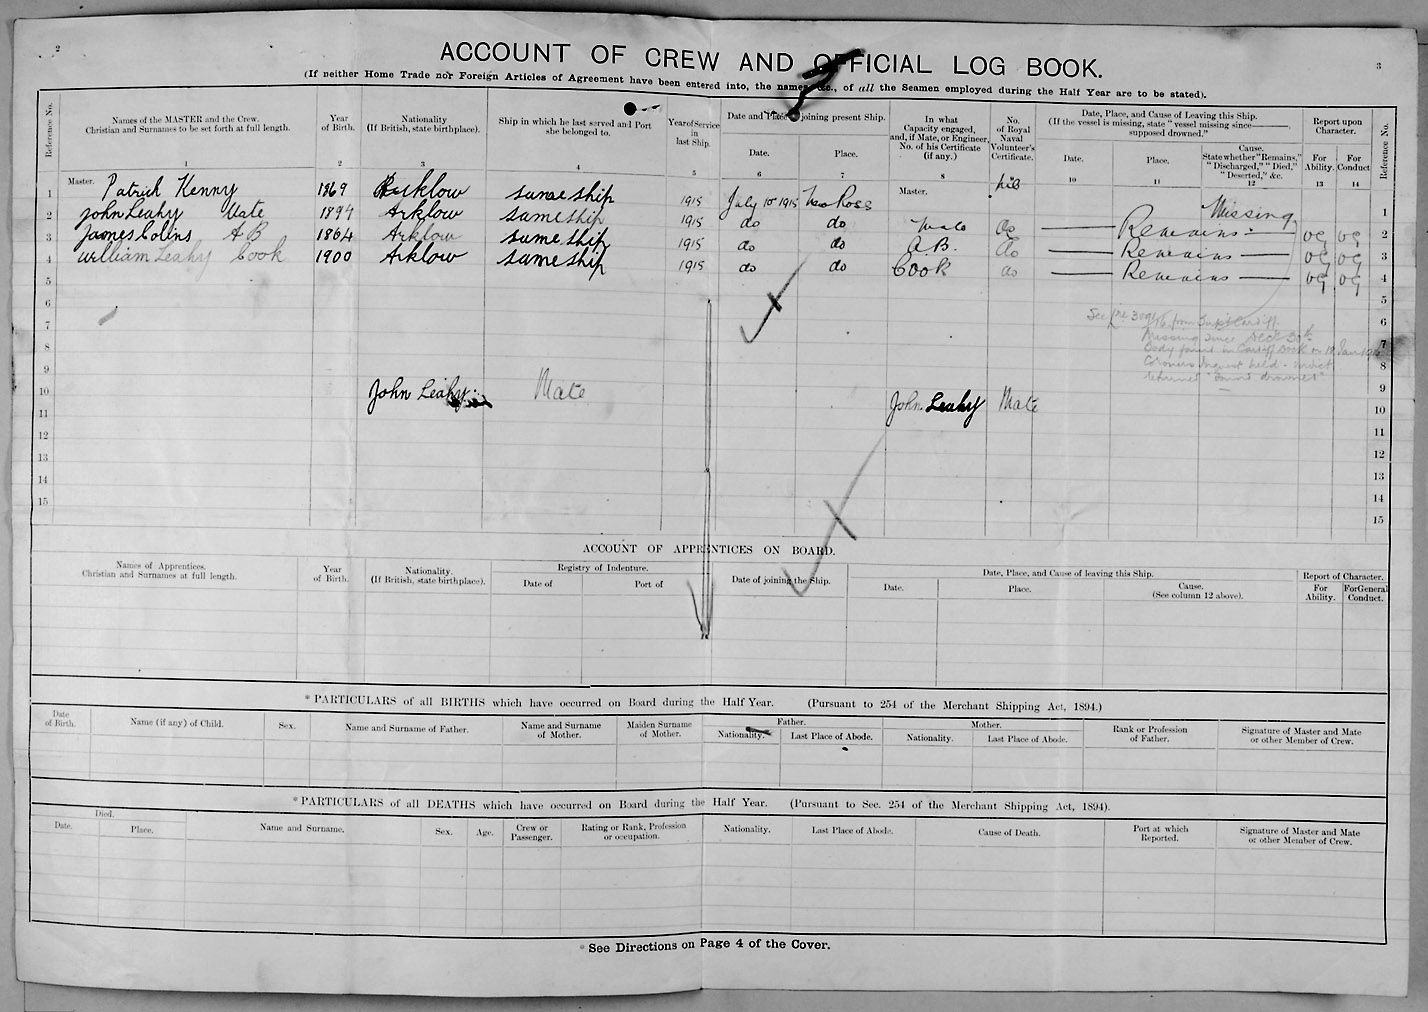 2
3
ACCOUNT OF CREW AND OFFICIAL LOG BOOK.
(If neither Home Trade nor Foreign Articles of Agreement have been entered into, the names, &c., of all the Seamen employed during the Half Year are to be stated).
Reference No.
Names of the MASTER and the Crew.
Christian and Surnames to be set forth at full length.
Year of Birth.
Nationality
(If British, state birthplace).
Ship in which he last served and Port she belonged to.
Year of Service in last Ship.
Date and Place of joining present Ship.
Date.
Place.
In what Capacity engaged, and, if Mate, or Engineer, No. of his Certificate (if any.)
No. of Royal Naval Volunteer's Certificate.
Date, Place, and Cause of Leaving this Ship.
(If the vessel is missing, state "vessel missing since——, supposed drowned."
Date.
Place.
Cause.
State whether "Remains," "Discharged," "Died," "Deserted," &c.
Report upon Character.
For Ability.
For Conduct
Reference No.
1 2 3 4 5 6 7 8 10 11 12 13 14
1 Master. Patrick Kenny 1869 Arklow same ship 1915 July 10 1915 New Ross Master. Missing 1
2 John Leahy Mate 1894 Arklow same ship 1915 do do Mate do Remains VG VG 2
3 James Colins AB 1864 Arklow same ship 1915 do do A.B. do Remains VG VG 3
4 William Leahy Cook 1900 Arklow same ship 1915 do do Cook do Remains VG VG 4
5 5
6 See from 6
7 Missing since Decr 30th 7
Body found in Cardiff Dock on Jan
8 held 8
"Found drowned"
9 9
10 John Leahy Mate John Leahy Mate 10
11 11
12 12
13 13
14 14
15 15
ACCOUNT OF APPRENTICES ON BOARD.
Names of Apprentices.
Christian and Surnames at full length.
Year of Birth.
Nationality.
(If British, state birthplace).
Registry of Indenture.
Date of
Port of
Date of joining the Ship.
Date, Place, and Cause of leaving this Ship.
Date.
Place.
Cause.
(See column 12 above).
Report of Character.
For Ability.
For General Conduct.
* PARTICULARS of all BIRTHS which have occurred on Board during the Half Year. (Pursuant to 254 of the Merchant Shipping Act, 1894.)
Date of Birth.
Name (if any) of Child.
Sex.
Name and Surname of Father.
Name and Surname of Mother.
Maiden Surname of Mother.
Father.
Nationality.
Last Place of Abode.
Mother.
Nationality.
Last Place of Abode.
Rank or Profession of Father.
Signature of Master and Mate or other Member of Crew.
* PARTICULARS of all DEATHS which have occurred on Board during the Half Year. (Pursuant to Sec. 254 of the Merchant Shipping Act, 1894).
Died.
Date.
Place.
Name and Surname.
Sex.
Age.
Crew or Passenger.
Rating or Rank, Profession or occupation.
Nationality.
Last Place of Abode.
Cause of Death.
Port at which Reported.
Signature of Master and Mate or other Member of Crew.
* See Directions on Page 4 of the Cover.